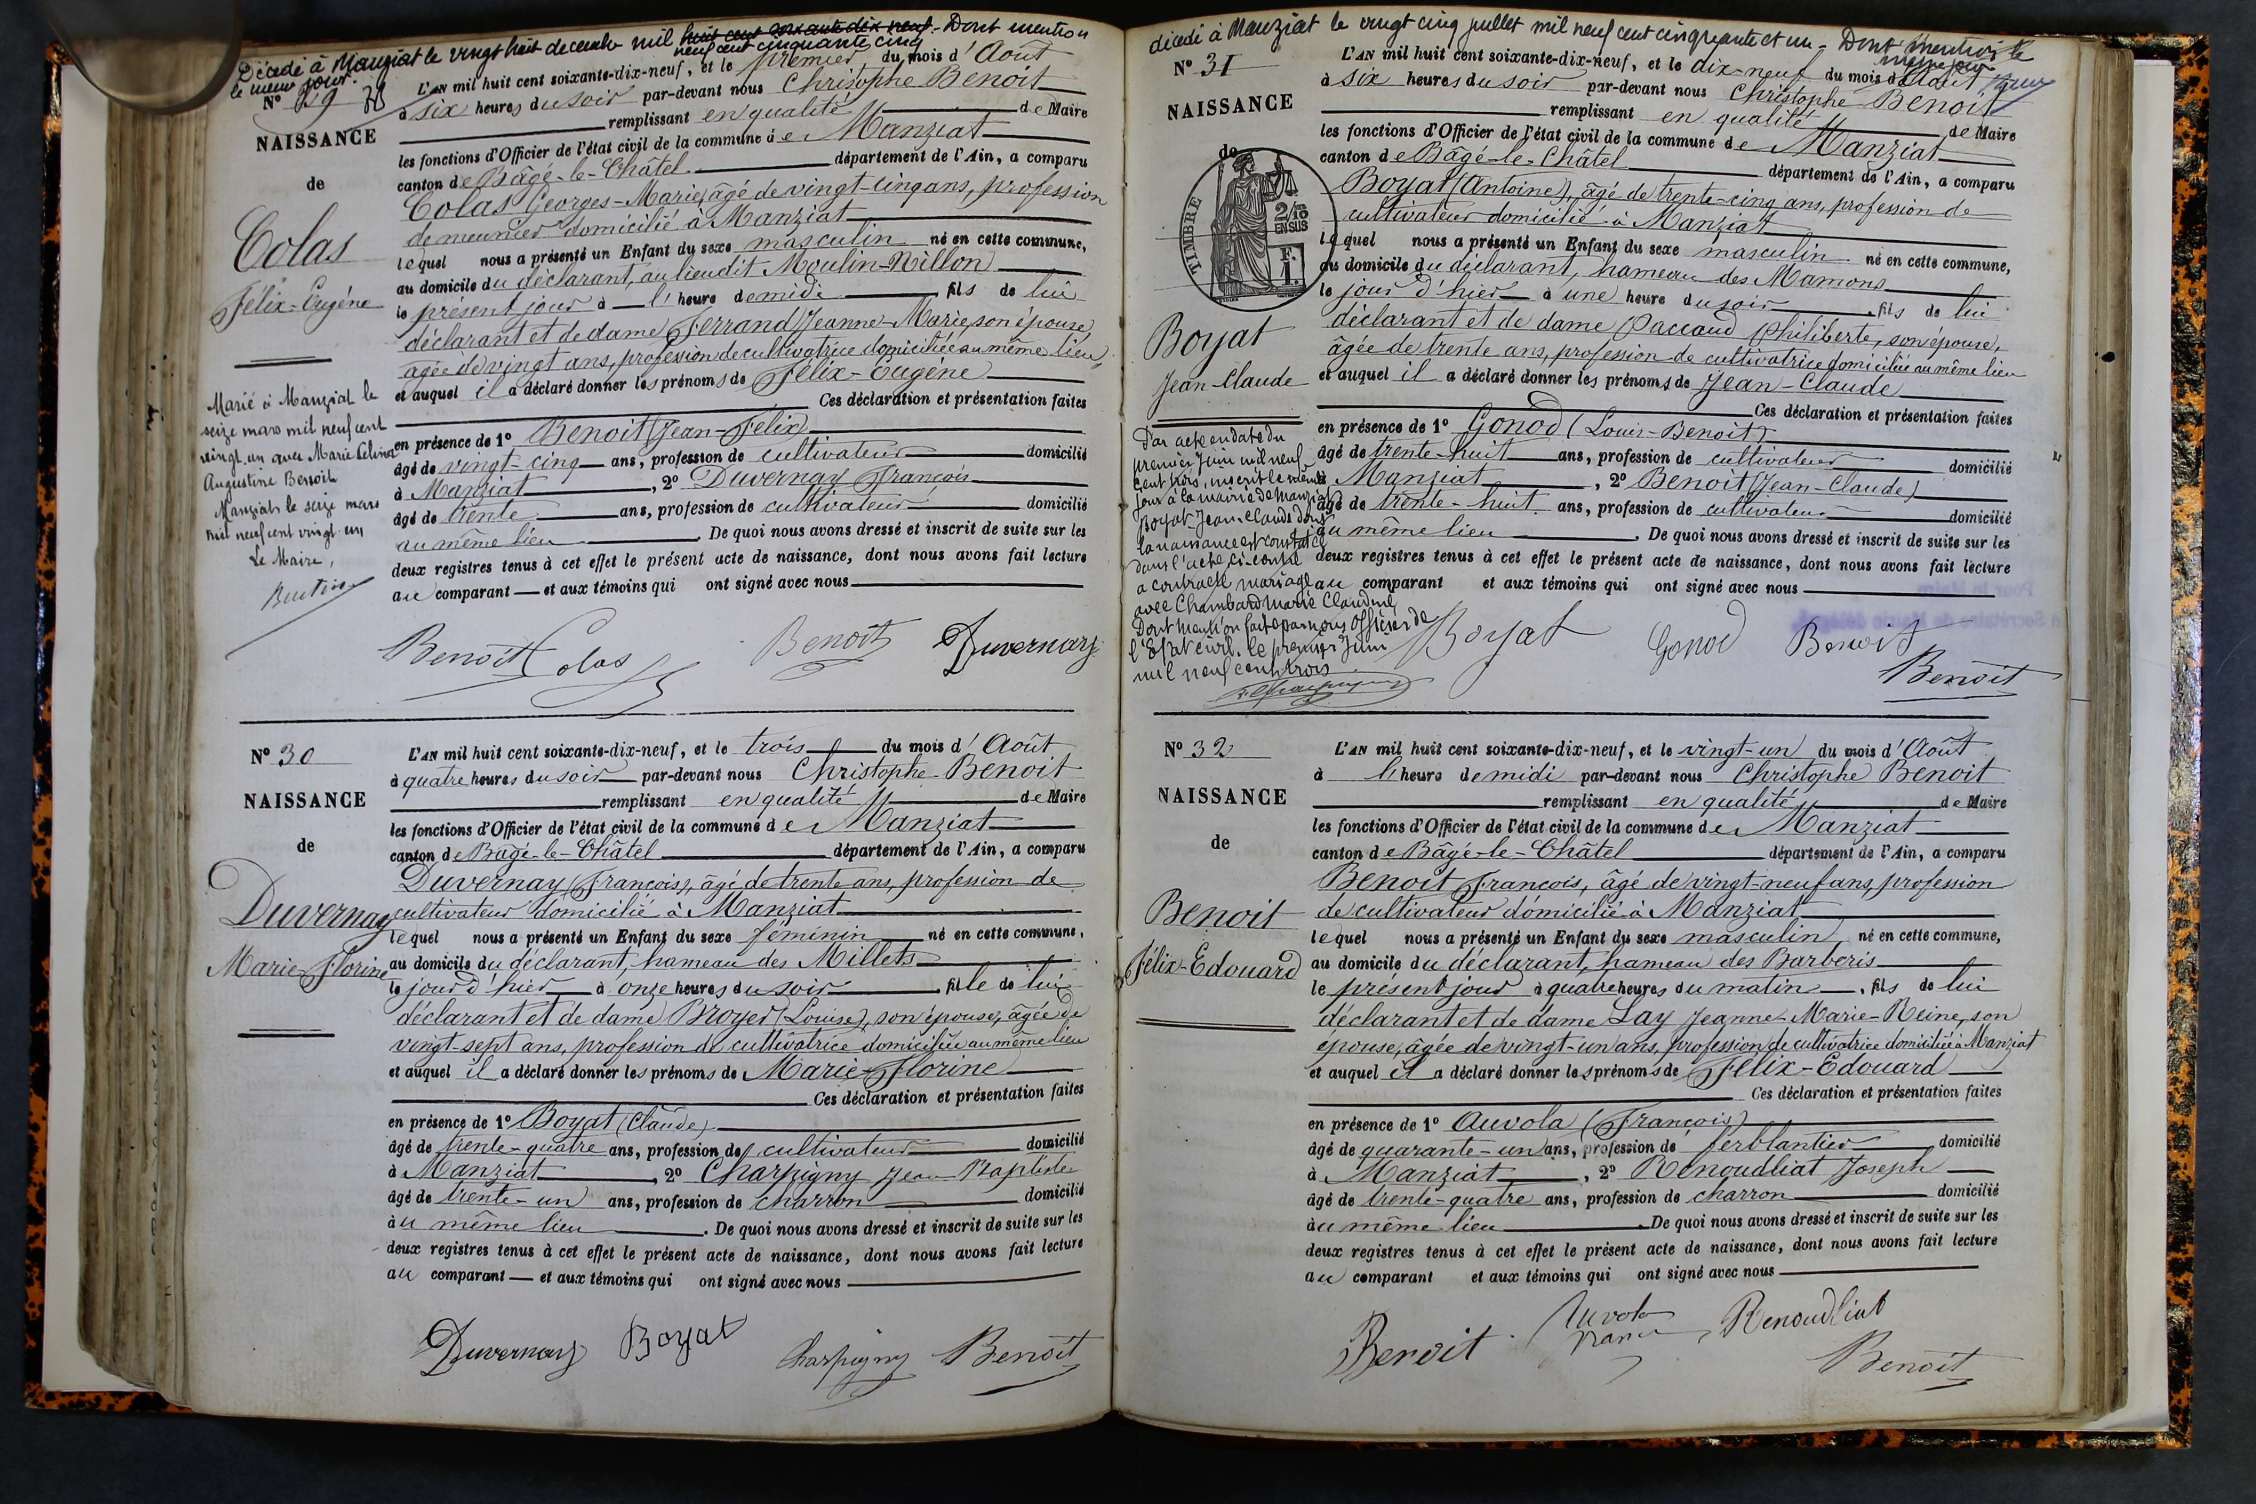 Décédé à Manziat le vingt huit decembre mil huit cent soixante dix neuf. Dont mention
neuf cent cinquante cinq
le même jour.
N° 29
NAISSANCE
de
Colas
Félix-Eugéne
Marié à Manziat le
seize mars mil neuf cent
vingt un avec Marie Celina
Augustine Benoit
Manziat le seize mars
mil neuf cent vingt un
Le Maire,
L'AN mil huit cent soixante-dix-neuf, et le premier du mois d'Août
à six heures du soir par-devant nous Christophe Benoit
remplissant en qualité de Maire
les fonctions d'Officier de l'état civil de la commune de Manziat
canton de Bâgé-le-Châtel département de l'Ain, a comparu
Colas Georges-Marie, âgé de vingt-cinq ans, profession
de meunier domicilié à Manziat
lequel nous a présenté un Enfant du sexe masculin né en cette commune,
au domicile du déclarant, au lieu dit Moulin-Nillon
le présent jour à l'heure de midi fils de lui
déclarant et de dame Ferrand Jeanne-Marie, son épouse,
agée de vingt ans, profession de cultivatrice domiciliée au même lieu,
et auquel il a déclaré donner les prénoms de Félix-Eugéne
Ces déclaration et présentation faites
en présence de 1° Benoit (Jean-Félix)
âgé de vingt-cinq ans, profession de cultivateur domicilié
à Manziat, 2° Duvernay François
âgé de trente ans, profession de cultivateur domicilié
au même lieu. De quoi nous avons dressé et inscrit de suite sur les
deux registres tenus à cet effet le présent acte de naissance, dont nous avons fait lecture
au comparant et aux témoins qui ont signé avec nous
Benoit Colas Benoit Duvernay
N° 30
NAISSANCE
de
Duvernay
Marie Florine
L'AN mil huit cent soixante-dix-neuf, et le trois du mois d'Août
à quatre heures du soir par-devant nous Christophe Benoit
remplissant en qualité de Maire
les fonctions d'Officier de l'état civil de la commune de Manziat
canton de Bagé-le-Châtel département de l'Ain, a comparu
Duvernay (François), âgé de trente ans, profession de
cultivateur domicilié à Manziat
lequel nous a présenté un Enfant du sexe féminin né en cette commune,
au domicile du déclarant, hameau des Millets
le jour d'hier à onze heures du soir fille de lui
déclarant et de dame Broyer (Louise), son épouse, âgée de
vingt-sept ans, profession de cultivatrice domiciliée au même lieu
et auquel il a déclaré donner les prénoms de Marie-Florine
Ces déclaration et présentation faites
en présence de 1° Boyat (Claude)
âgé de trente-quatre ans, profession de cultivateur domicilié
à Manziat, 2° Charpigny Jean Baptiste
âgé de trente-un ans, profession de charron domicilié
au même lieu. De quoi nous avons dressé et inscrit de suite sur les
deux registres tenus à cet effet le présent acte de naissance, dont nous avons fait lecture
au comparant et aux témoins qui ont signé avec nous
Duvernay Boyat Charpigny Benoit
décédé à Manziat le vingt cinq juillet mil neuf cent cinquante et un. Dont mention le
même jour
N° 31
NAISSANCE
de
TIMBRE
2/10
EN SUS
F.
1.
Boyat
Jean-Claude
Par acte en date du
premier Juin mil neuf
cent trois, inscrit le même
jour à la mairie de Manziat
Boyat Jean-Claude dont
la naissance est constatée
dans l'acte ci-contre
a contracté mariage
avec Chambard Marie Claudine
Dont mention faite par nous officier de
l'Etat civil. le premier Juin
mil neuf cent trois
L'AN mil huit cent soixante-dix-neuf, et le dix-neuf du mois d'Août
à six heures du soir par-devant nous Christophe Benoit
remplissant en qualité de Maire
les fonctions d'Officier de l'état civil de la commune de Manziat
canton de Bâgé-le-Châtel département de l'Ain, a comparu
Boyat (Antoine), âgé de trente-cinq ans, profession de
cultivateur domicilié à Manziat
lequel nous a présenté un Enfant du sexe masculin né en cette commune,
au domicile du déclarant, hameau des Mamons
le jour d'hier à une heure du soir fils de lui
déclarant et de dame Paccaud Philiberte, son épouse,
âgée de trente ans, profession de cultivatrice domiciliée au même lieu
et auquel il a déclaré donner les prénoms de Jean-Claude
Ces déclaration et présentation faites
en présence de 1° Gonod (Louis-Benoit)
âgé de trente-huit ans, profession de cultivateur domicilié
à Manziat, 2° Benoit (Jean-Claude)
âgé de trente-huit ans, profession de cultivateur domicilié
au même lieu. De quoi nous avons dressé et inscrit de suite sur les
deux registres tenus à cet effet le présent acte de naissance, dont nous avons fait lecture
au comparant et aux témoins qui ont signé avec nous
Boyat Gonod Benoit
Benoit
N° 32
NAISSANCE
de
Benoit
Félix-Edouard
L'AN mil huit cent soixante-dix-neuf, et le vingt-un du mois d'Août
à l'heure de midi par-devant nous Christophe Benoit
remplissant en qualité de Maire
les fonctions d'Officier de l'état civil de la commune de Manziat
canton de Bâgé-le-Châtel département de l'Ain, a comparu
Benoit François, âgé de vingt-neuf ans, profession
de cultivateur domicilié à Manziat
lequel nous a présenté un Enfant du sexe masculin né en cette commune,
au domicile du déclarant, hameau des Barberis
le présent jour à quatre heures du matin, fils de lui
déclarant et de dame Lay Jeanne-Marie-Reine, son
épouse, âgée de vingt-un ans, profession de cultivatrice domiciliée à Manziat
et auquel il a déclaré donner les prénoms de Félix-Edouard
Ces déclaration et présentation faites
en présence de 1° Auvola (François)
âgé de quarante-un ans, profession de ferblantier domicilié
à Manziat, 2° Renoudliat Joseph
âgé de trente-quatre ans, profession de charron domicilié
au même lieu. De quoi nous avons dressé et inscrit de suite sur les
deux registres tenus à cet effet le présent acte de naissance, dont nous avons fait lecture
au comparant et aux témoins qui ont signé avec nous
Benoit Auvola Renoudliat
Benoit